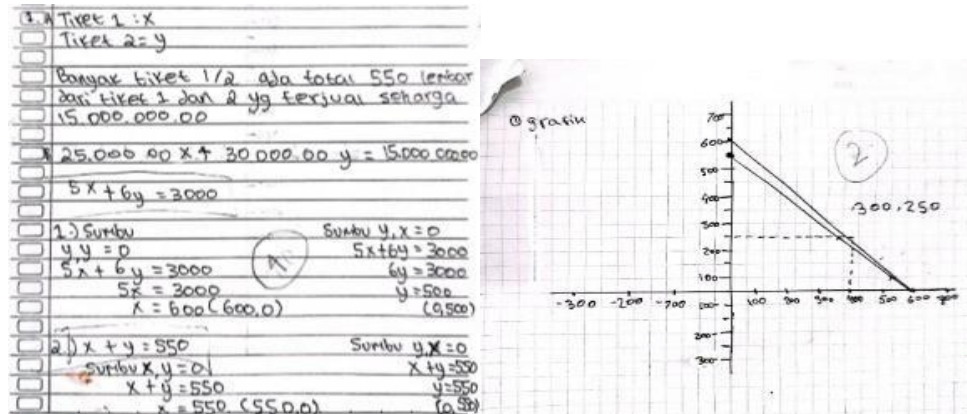 Tiket 1 : x
Tiket 2 = y
Banyak tiket 1/2 ada total 550 lembar
dari tiket 1 dan 2 yg terjual seharga
15.000.000.00
25.000 00 x + 30 000.00 y = 15.000 000.00
5x + 6y = 3000
1.) Sumbu
y, y = 0
5x + 6y = 3000
5x = 3000
x = 600 (600,0)
Sumbu y, x = 0
5x+6y = 3000
6y = 3000
y = 500
(0,500)
2.) x + y = 550
Sumbu x, y = 0
x + y = 550
x = 550 (550,0)
Sumbu y, x = 0
x + y = 550
y = 550
grafik
2
300.250
700
600
500
400
300
200
100
-300 -200 -100 100 200 300 400 500 600
200
300